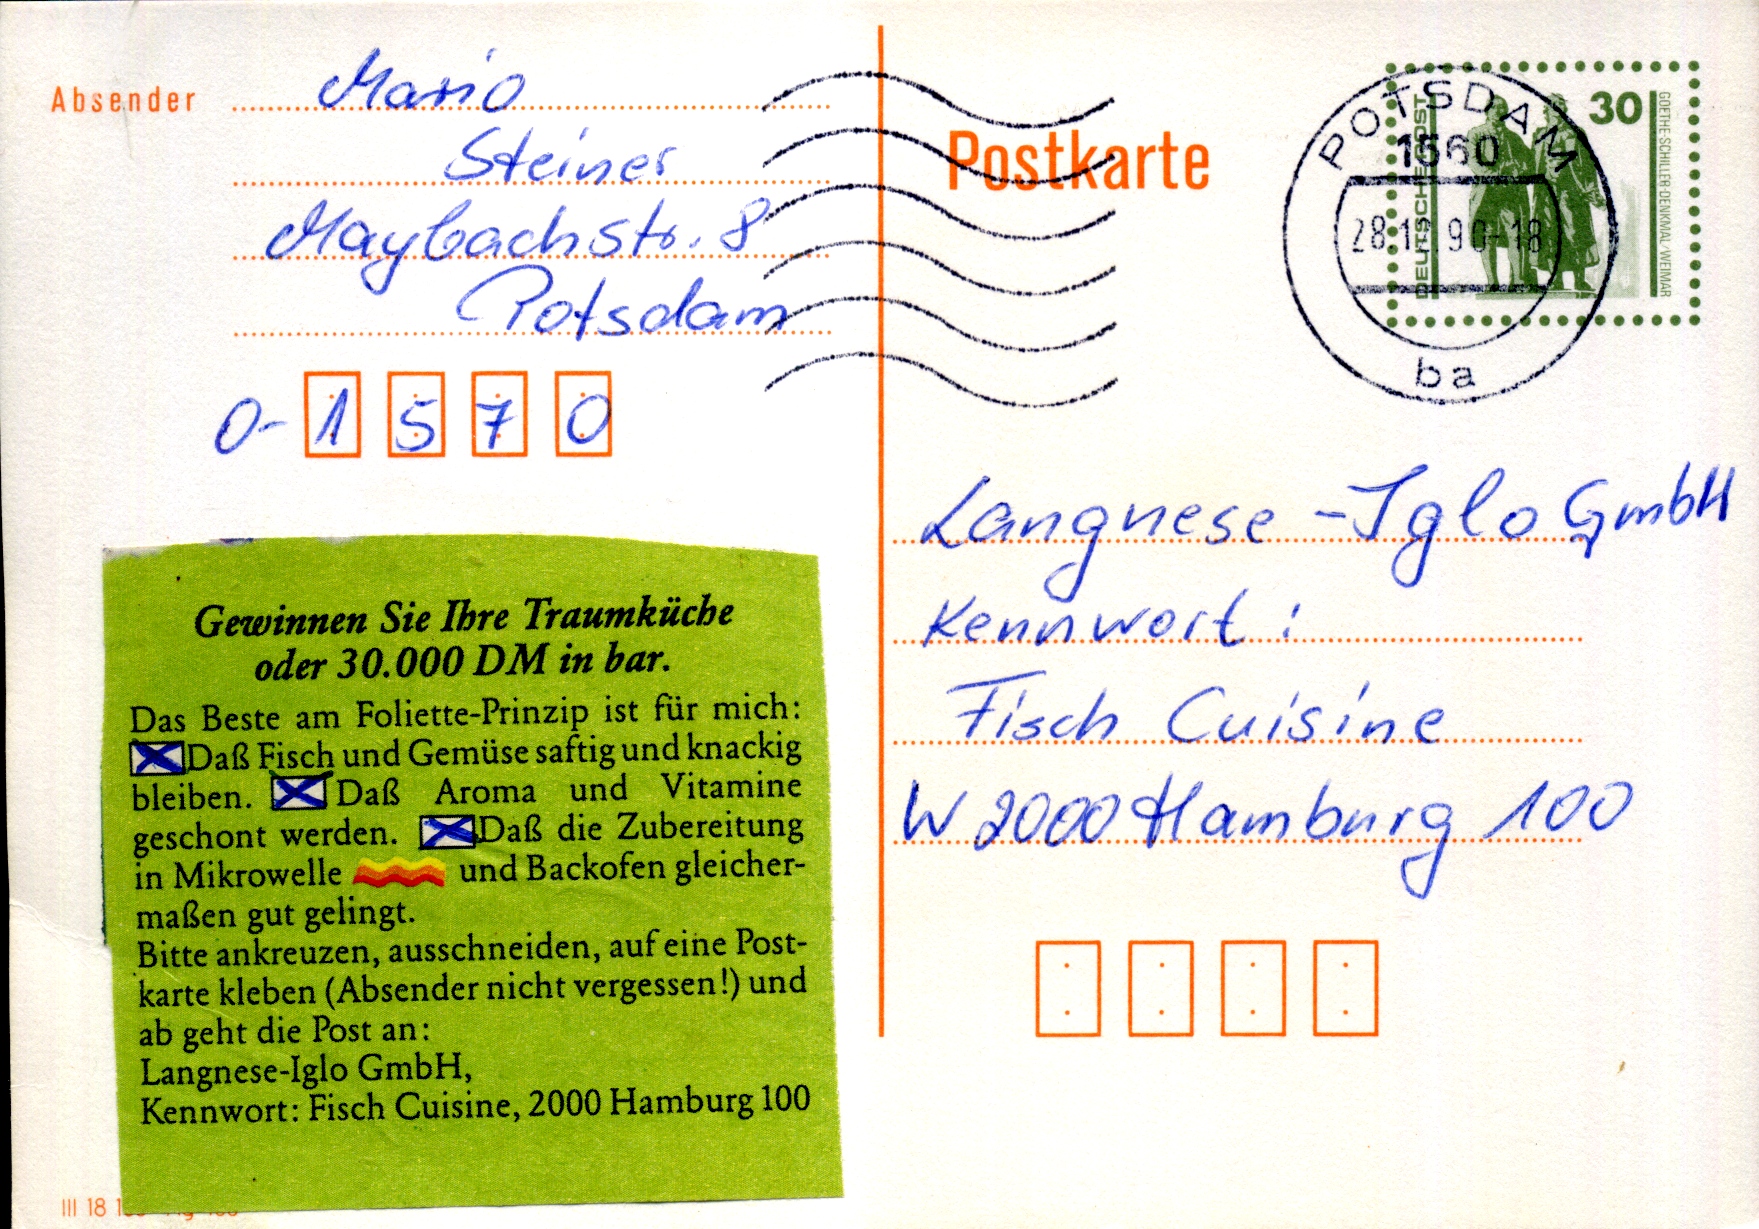 Absender
Mario
Steiner
Maybachstr. 8
Potsdam
O- 1 5 7 0
Postkarte
POTSDAM
1560
90-18
ba
DEUTSCHE POST
30
GOETHE-SCHILLER-DENKMAL/WEIMAR
Langnese-Iglo GmbH
Kennwort:
Fisch Cuisine
W 2000 Hamburg 100
Gewinnen Sie Ihre Traumküche
oder 30.000 DM in bar.
Das Beste am Foliette-Prinzip ist für mich:
Daß Fisch und Gemüse saftig und knackig
bleiben. Daß Aroma und Vitamine
geschont werden. Daß die Zubereitung
in Mikrowelle und Backofen gleicher-
maßen gut gelingt.
Bitte ankreuzen, ausschneiden, auf eine Post-
karte kleben (Absender nicht vergessen!) und
ab geht die Post an:
Langnese-Iglo GmbH,
Kennwort: Fisch Cuisine, 2000 Hamburg 100
III 18